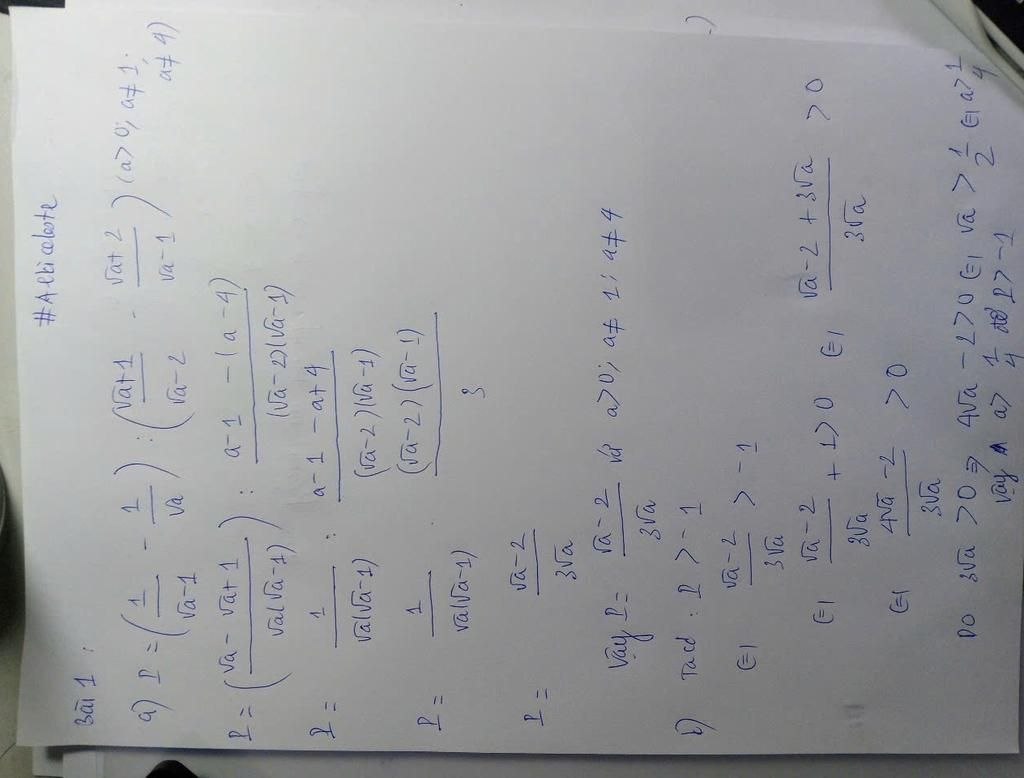 #Albiceleste
Bài 1 :
a) P = (1/(√a-1) - 1/√a) : ((√a+1)/(√a-2) - (√a+2)/(√a-1)) (a>0; a≠1; a≠4)
P = ((√a - √a+1)/(√a(√a-1))) : (a-1 -(a-4))/((√a-2)(√a-1))
P = 1/(√a(√a-1)) : (a-1-a+4)/((√a-2)(√a-1))
P = 1/(√a(√a-1)) . ((√a-2)(√a-1))/3
P = (√a-2)/(3√a)
Vậy P = (√a-2)/(3√a) với a>0; a≠1; a≠4
b) Ta có : P > -1
⇔ (√a-2)/(3√a) > -1
⇔ (√a-2)/(3√a) + 1>0 ⇔ (√a-2+3√a)/(3√a) > 0
⇔ (4√a-2)/(3√a) > 0
Do 3√a >0 ⇒ 4√a-2>0 ⇔ √a > 1/2 ⇔ a> 1/4
Vậy a> 1/4 để P>-1